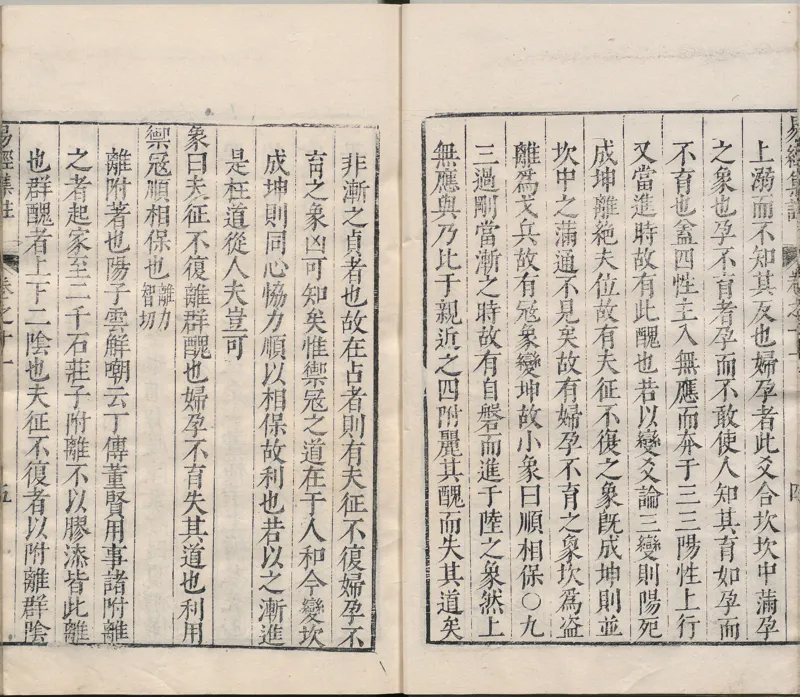 上溺而不知其反也婦孕者此爻合坎坎中滿孕
之象也孕不育者孕而不敢使人知其育如孕而
不育也蓋四性主入無應而奔于三三陽性上行
又當進時故有此醜也若以變爻論三變則陽死
成坤離絶夫位故有夫征不復之象旣成坤則並
坎中之滿通不見矣故有婦孕不育之象坎爲盗
離爲戈兵故有冦象變坤故小象曰順相保○九
三過剛當漸之時故有自磐而進于陸之象然上
無應與乃比于親近之四附麗其醜而失其道矣
非漸之貞者也故在占者則有夫征不復婦孕不
育之象凶可知矣惟禦冦之道在于人和今變坎
成坤則同心恊力順以相保故利也若以之漸進
是枉道從人夫豈可
象曰夫征不復離群醜也婦孕不育失其道也利用
禦冦順相保也離力智切
離附著也陽子雲解嘲云丁傅董賢用事諸附離
之者起家至二千石莊子附離不以膠漆皆此離
也群醜者上下二陰也夫征不復者以附離群陰
易經集註
卷之十一
五